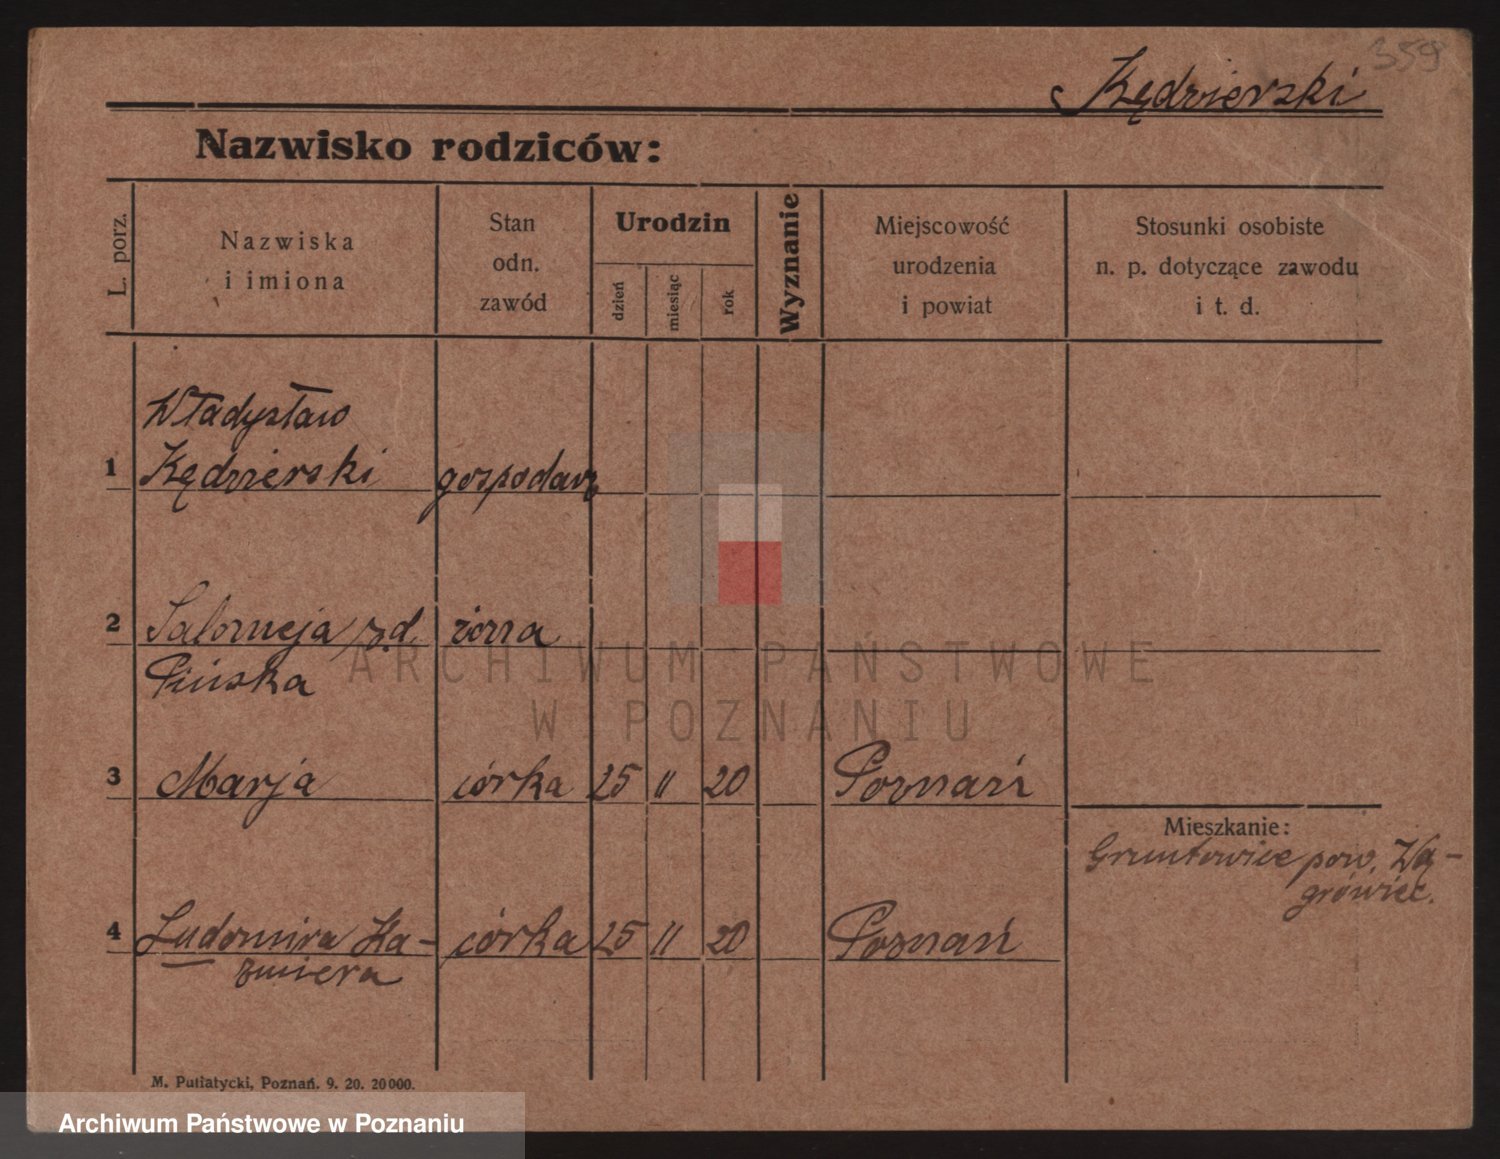 359
Kędzierski
Nazwisko rodziców:
L. porz.
Nazwiska
i imiona
Stan
odn.
zawód
Urodzin
dzień
miesiąc
rok
Wyznanie
Miejscowość
urodzenia
i powiat
Stosunki osobiste
n. p. dotyczące zawodu
i t. d.
Władysław
1 Kędzierski gospodarz
2 Salomeja z d. żona
Pińska
3 Marja córka 25 11 20 Poznań
Mieszkanie:
Gruntowice pow. Wą-
grówiec.
4 Ludomira Ka- córka 25 11 20 Poznań
zmiera
M. Putiatycki, Poznań. 9. 20. 20000.
ARCHIWUM PAŃSTWOWE
W POZNANIU
Archiwum Państwowe w Poznaniu